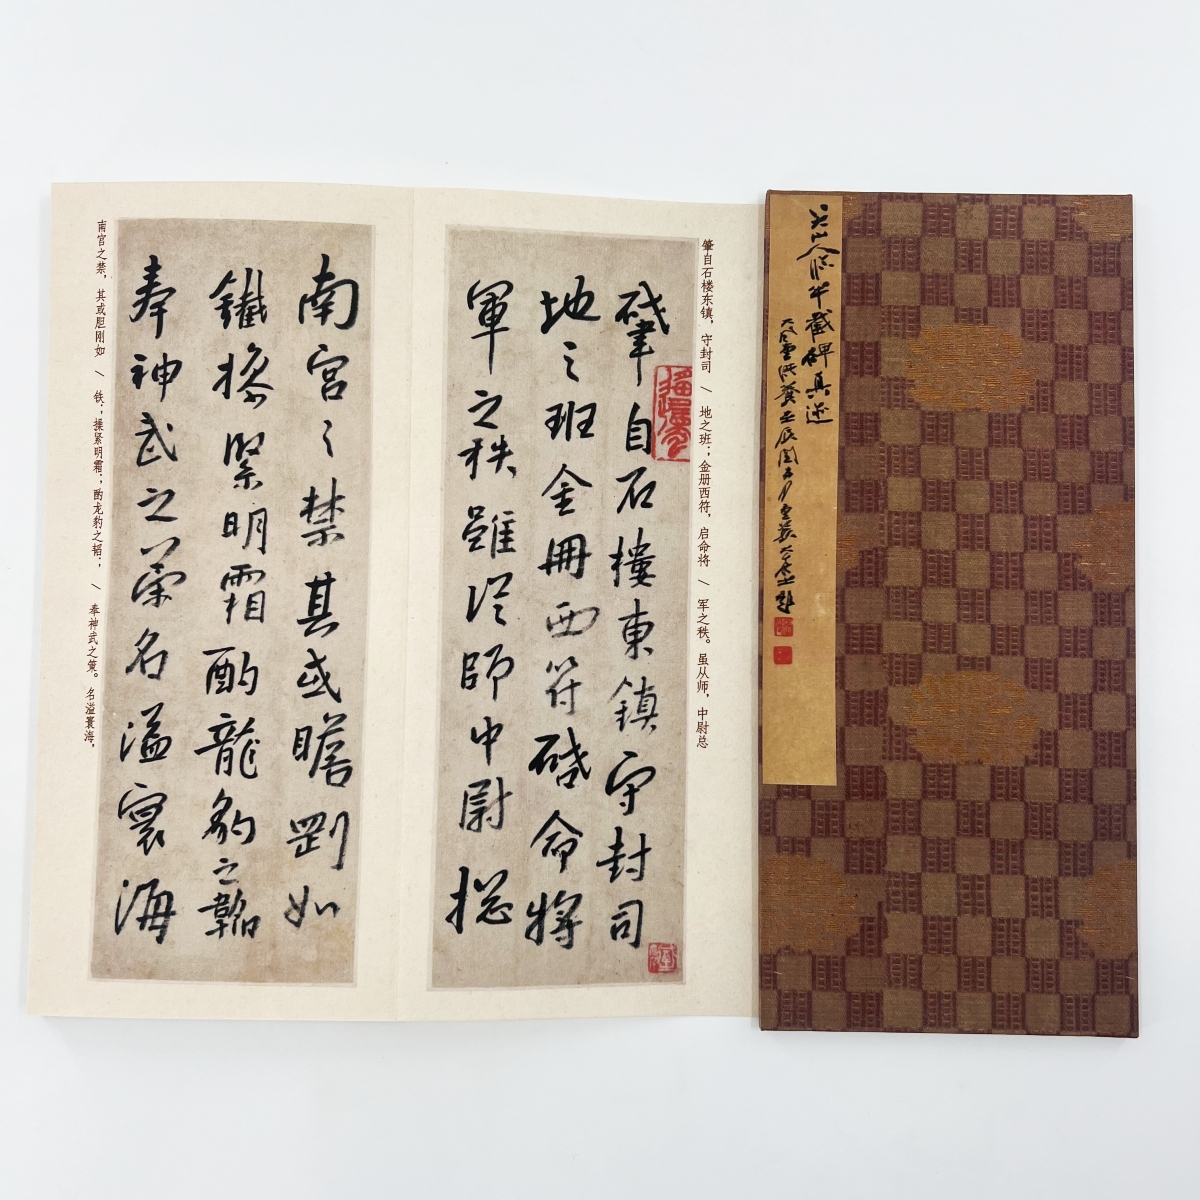 八大山人临半截碑真迹
大风堂供养
肇自石楼东镇，守封司 \ 地之班；金册西符，启命将 \ 军之秩。虽从师，中尉总
肇自石樓東鎮守封司
地之班金冊西符啓命將
軍之秩雖從師中尉揔
南宮之禁其或瞻剛如
鐵操緊明霜酌龍豹之韜
奉神武之策名溢寰海
南宫之禁，其或胆刚如 \ 铁；操紧明霜；酌龙豹之韬； \ 奉神武之策。名溢寰海，